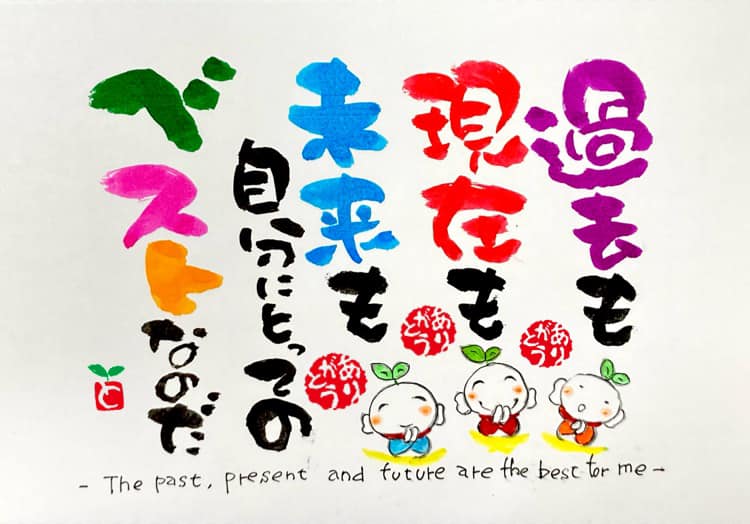 過去も
現在も
未来も
自分にとっての
ベストなのだ
ありがとう
ありがとう
ありがとう
と
- The past, present and future are the best for me -